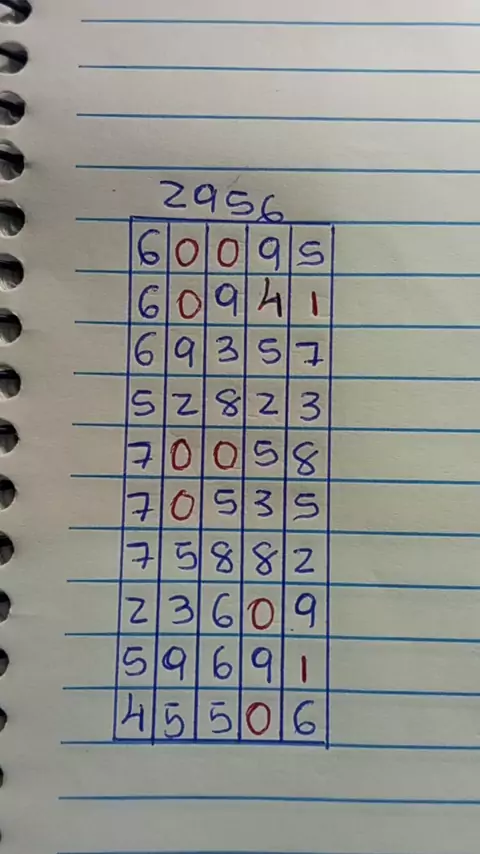 2956
6 0 0 9 5
6 0 9 4 1
6 9 3 5 7
5 2 8 2 3
7 0 0 5 8
7 0 5 3 5
7 5 8 8 2
2 3 6 0 9
5 9 6 9 1
4 5 5 0 6